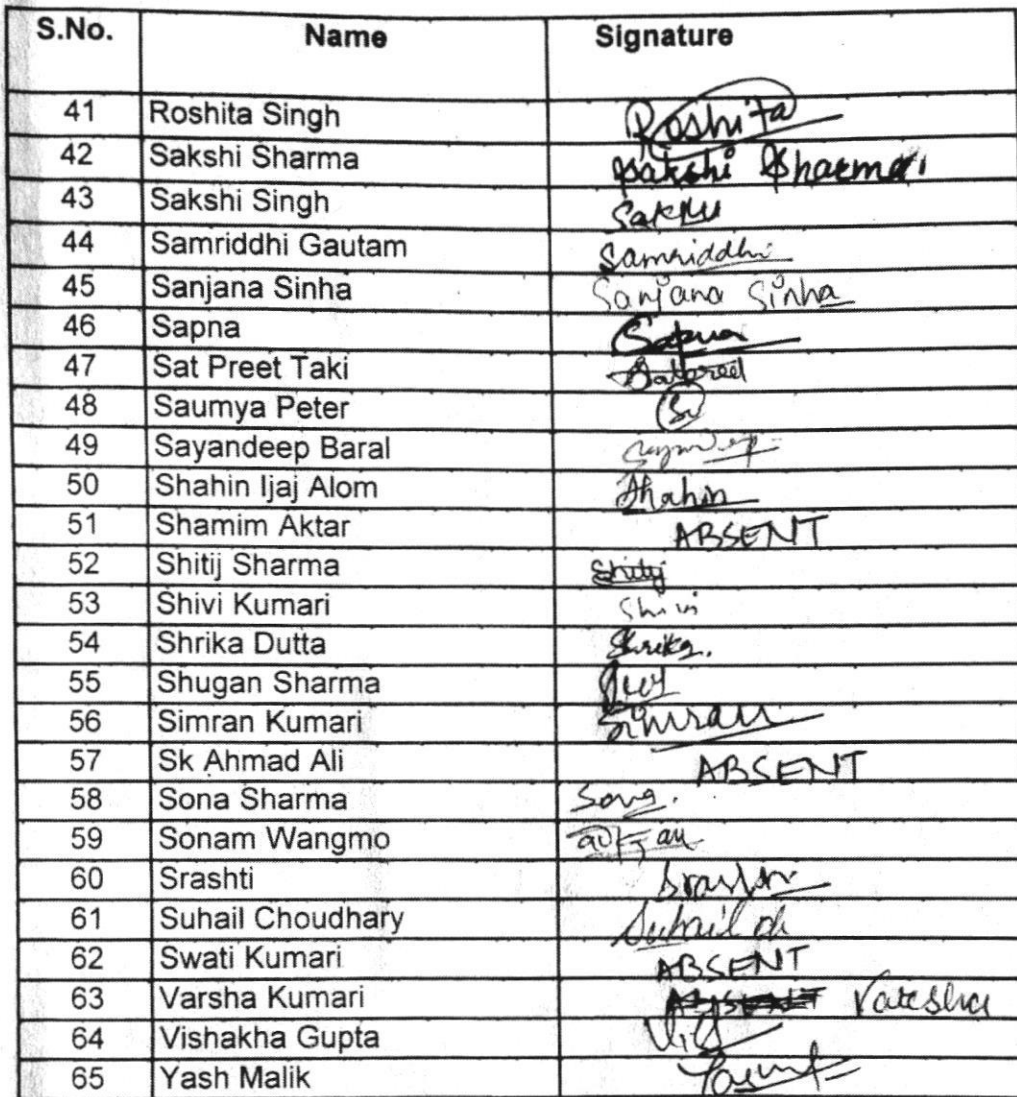 S.No. Name Signature
41 Roshita Singh Roshita
42 Sakshi Sharma Sakshi Sharma
43 Sakshi Singh Sakshi
44 Samriddhi Gautam Samriddhi
45 Sanjana Sinha Sanjana Sinha
46 Sapna Sapna
47 Sat Preet Taki Satpreet
48 Saumya Peter
49 Sayandeep Baral Sayandeep
50 Shahin Ijaj Alom Shahin
51 Shamim Aktar ABSENT
52 Shitij Sharma Shitij
53 Shivi Kumari Shivi
54 Shrika Dutta Shrika.
55 Shugan Sharma
56 Simran Kumari Simran
57 Sk Ahmad Ali ABSENT
58 Sona Sharma Sona.
59 Sonam Wangmo
60 Srashti Srashti
61 Suhail Choudhary Suhail ch
62 Swati Kumari ABSENT
63 Varsha Kumari ABSENT Varsha
64 Vishakha Gupta
65 Yash Malik